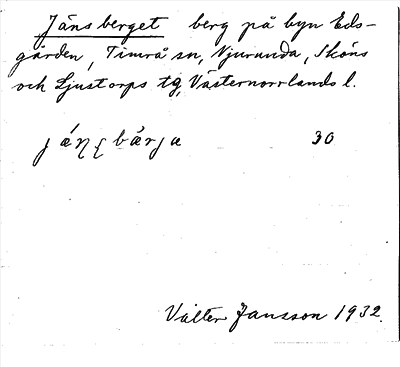 Jänsberget berg på byn Eds-
gården, Timrå sn, Njurunda, Sköns
och Ljustorps tg, Västernorrlands l.
30
Valter Jansson 1932.